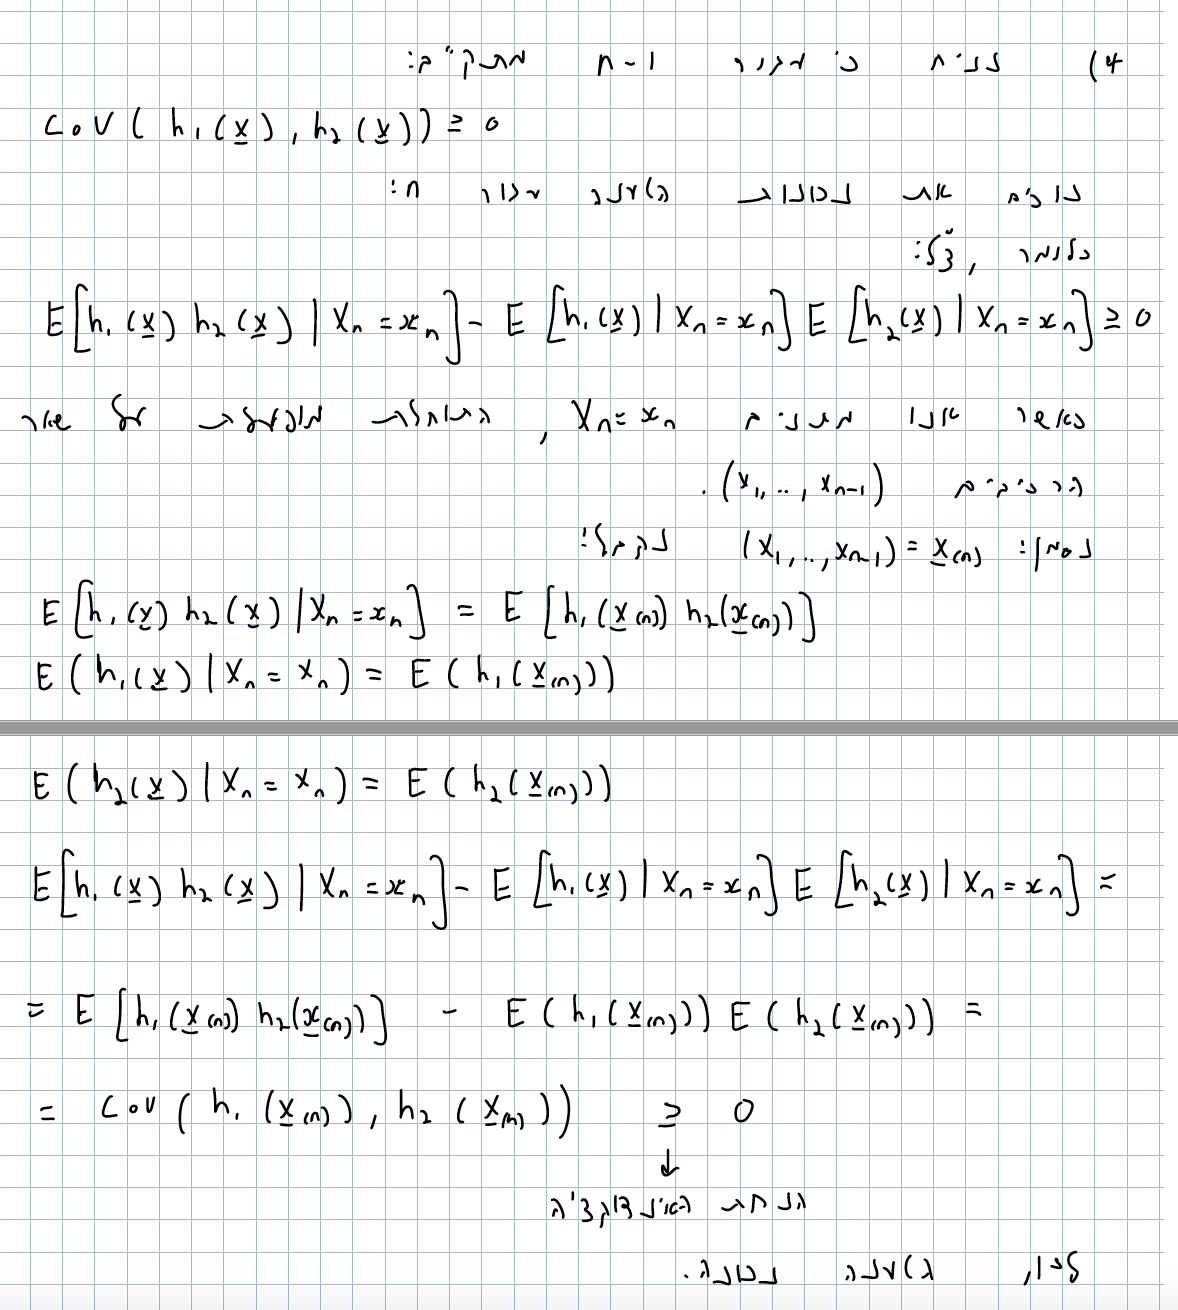 4) נניח כי עבור n-1 מתקיים:
Cov(h₁(x̲), h₂(x̲)) ≥ 0
נוכיח את נכונות הטענה עבור n:
כלומר, צ"ל:
E[h₁(x̲) h₂(x̲) | Xₙ = xₙ] - E[h₁(x̲) | Xₙ = xₙ] E[h₂(x̲) | Xₙ = xₙ] ≥ 0
כאשר אנו מתנים Xₙ = xₙ, התוחלת מופעלת על שאר
הרכיבים (x₁, .., xₙ₋₁).
נסמן: (x₁, .., xₙ₋₁) = x̲₍ₙ₎ נקבל:
E[h₁(x̲) h₂(x̲) | Xₙ = xₙ] = E[h₁(x̲₍ₙ₎) h₂(x̲₍ₙ₎)]
E(h₁(x̲) | Xₙ = xₙ) = E(h₁(x̲₍ₙ₎))
E(h₂(x̲) | Xₙ = xₙ) = E(h₂(x̲₍ₙ₎))
E[h₁(x̲) h₂(x̲) | Xₙ = xₙ] - E[h₁(x̲) | Xₙ = xₙ] E[h₂(x̲) | Xₙ = xₙ] =
= E[h₁(x̲₍ₙ₎) h₂(x̲₍ₙ₎)] - E(h₁(x̲₍ₙ₎)) E(h₂(x̲₍ₙ₎)) =
= Cov(h₁(x̲₍ₙ₎), h₂(x̲₍ₙ₎)) ≥ 0
↓
הנחת האינדוקציה
לכן, הטענה נכונה.